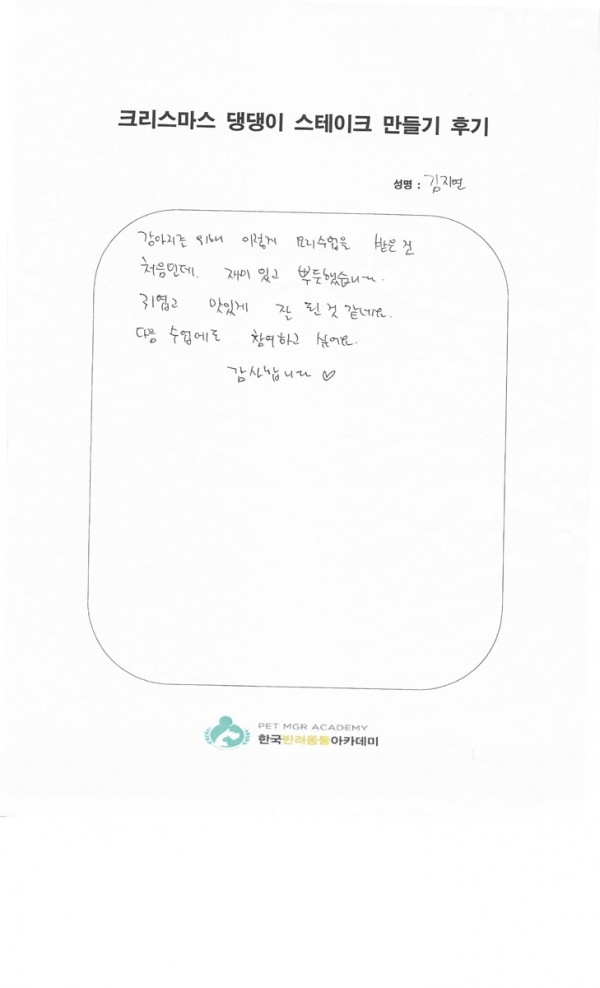 크리스마스 댕댕이 스테이크 만들기 후기
성명 : 김지연
강아지를 위해 이렇게 요리수업을 받은 건
처음인데. 재미 있고 뿌듯했습니다.
귀엽고 맛있게 잘 된 것 같네요.
다음 수업에도 참여하고 싶어요.
감사합니다 ♡
PET MGR ACADEMY
한국반려동물아카데미